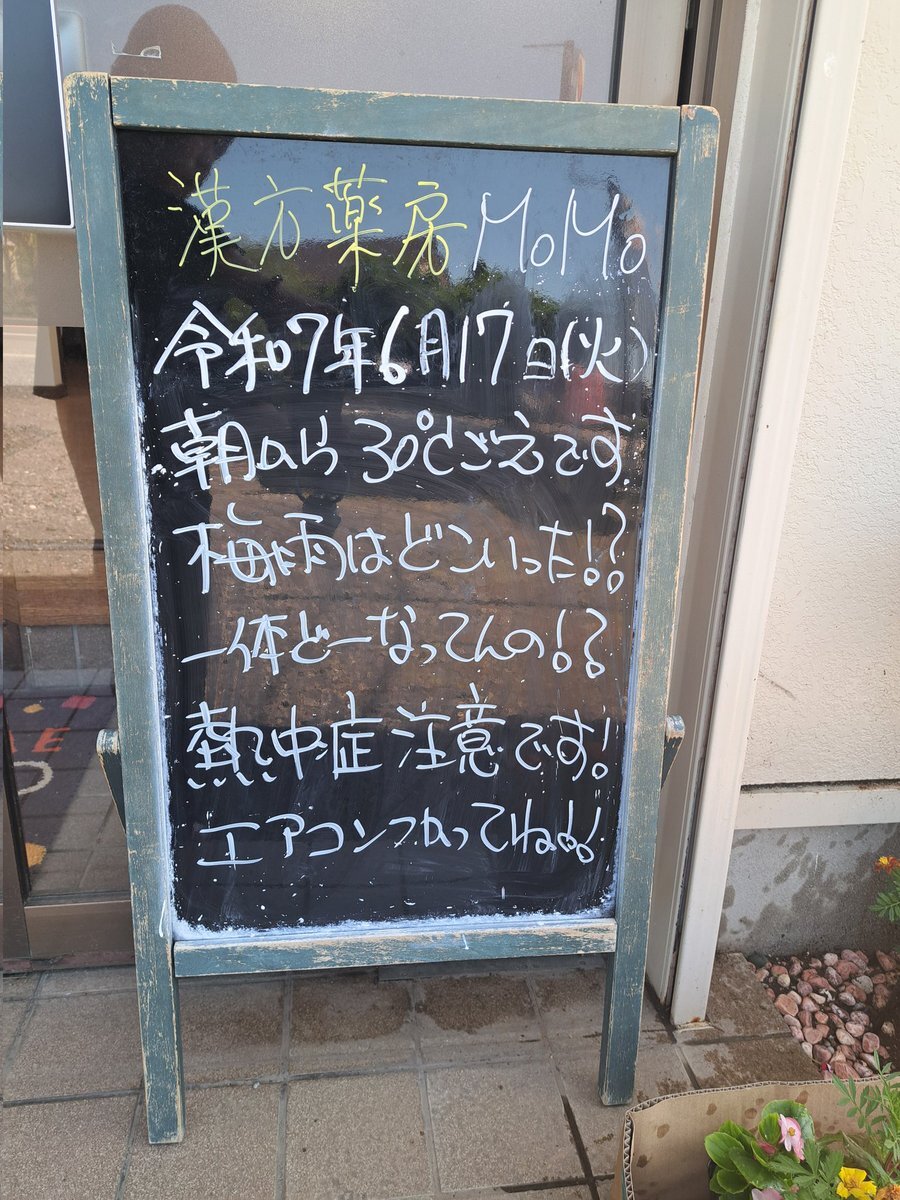 漢方薬房 MoMo
令和7年6月17日(火)
朝から30℃ごえです
梅雨はどこいった!?
一体どーなってんの!?
熱中症注意です!
エアコンつかってね!!